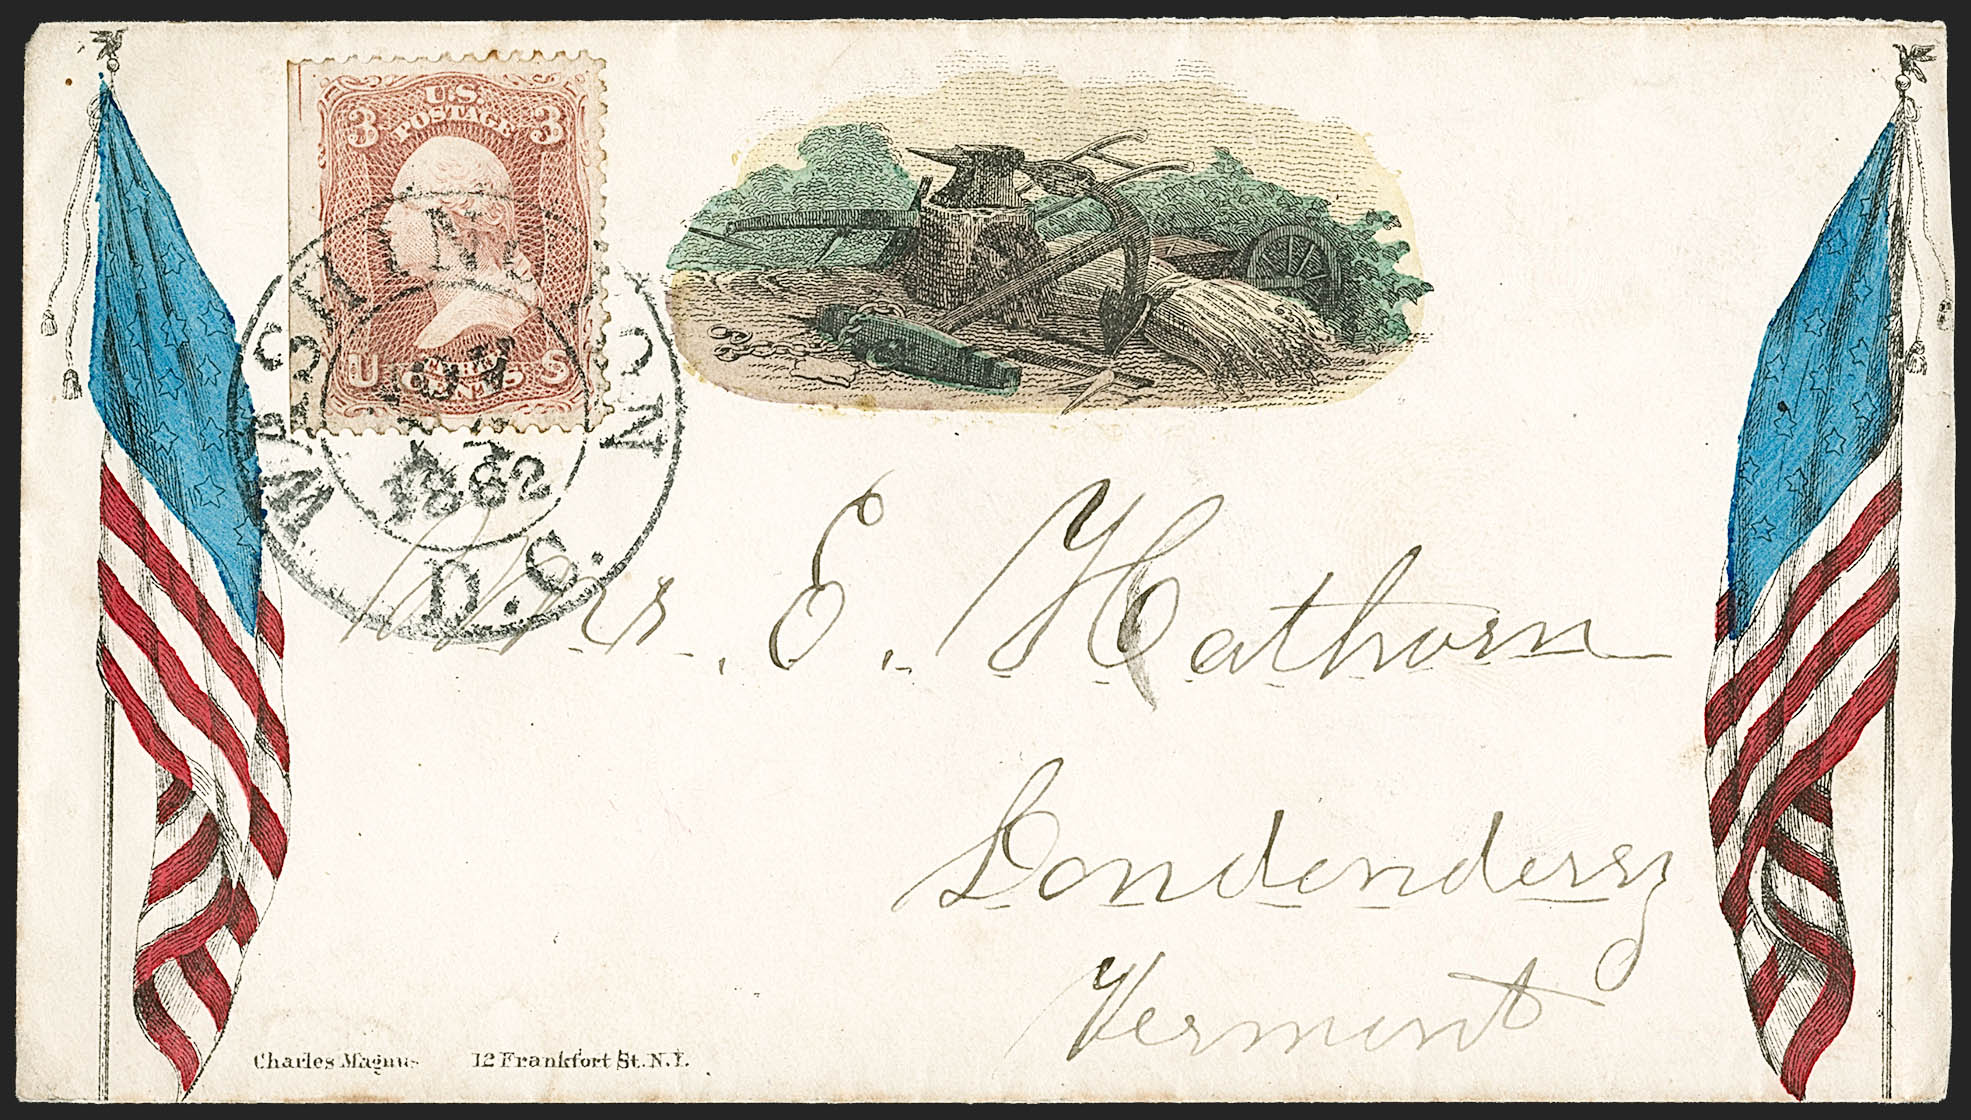 U.S.
POSTAGE
3 3
U THREE S
CENTS
WASHINGTON
1862
D.C.
Mrs. E. Hathorn
Londonderry
Vermont
Charles Magnus 12 Frankfort St. N.Y.